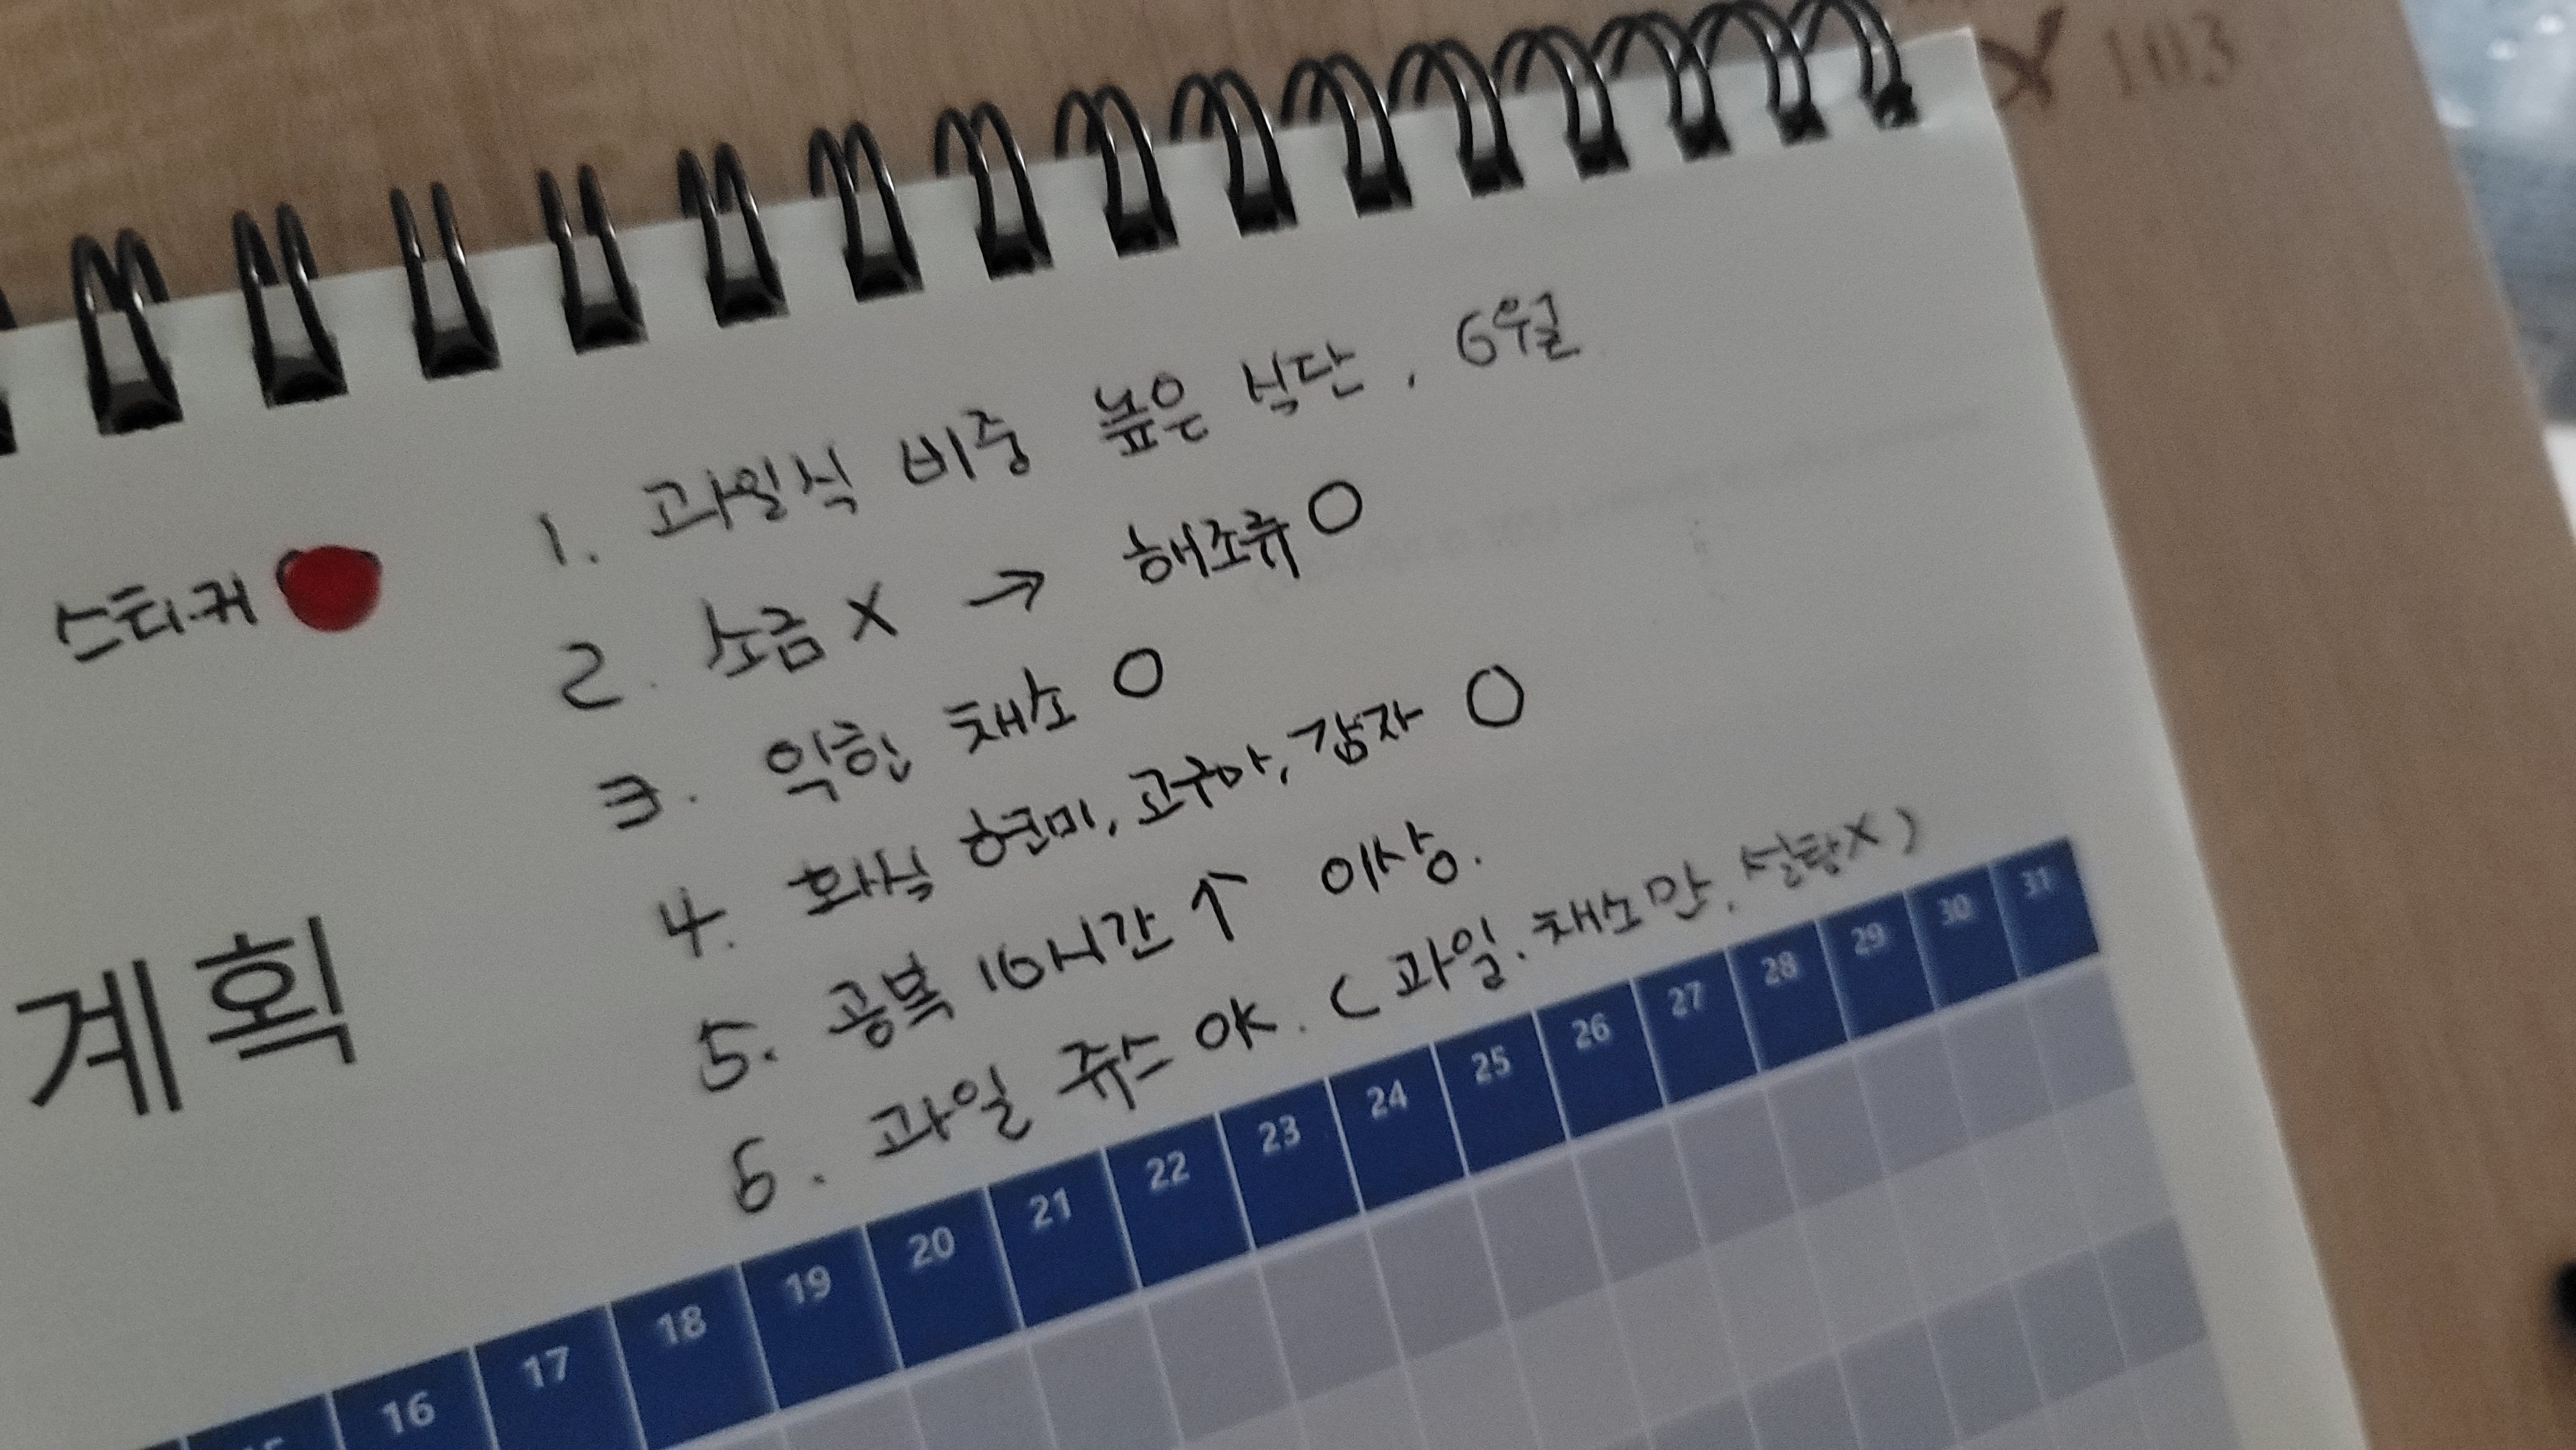 스티커
1. 과일식 비중 높은 식단, 6월
2. 소금 X → 해조류 O
3. 익힌 채소 O
4. 화식 현미, 고구마, 감자 O
5. 공복 16시간 ↑ 이상.
6. 과일 쥬스 OK. (과일, 채소만, 설탕X)
계획
16 17 18 19 20 21 22 23 24 25 26 27 28 29 30 31